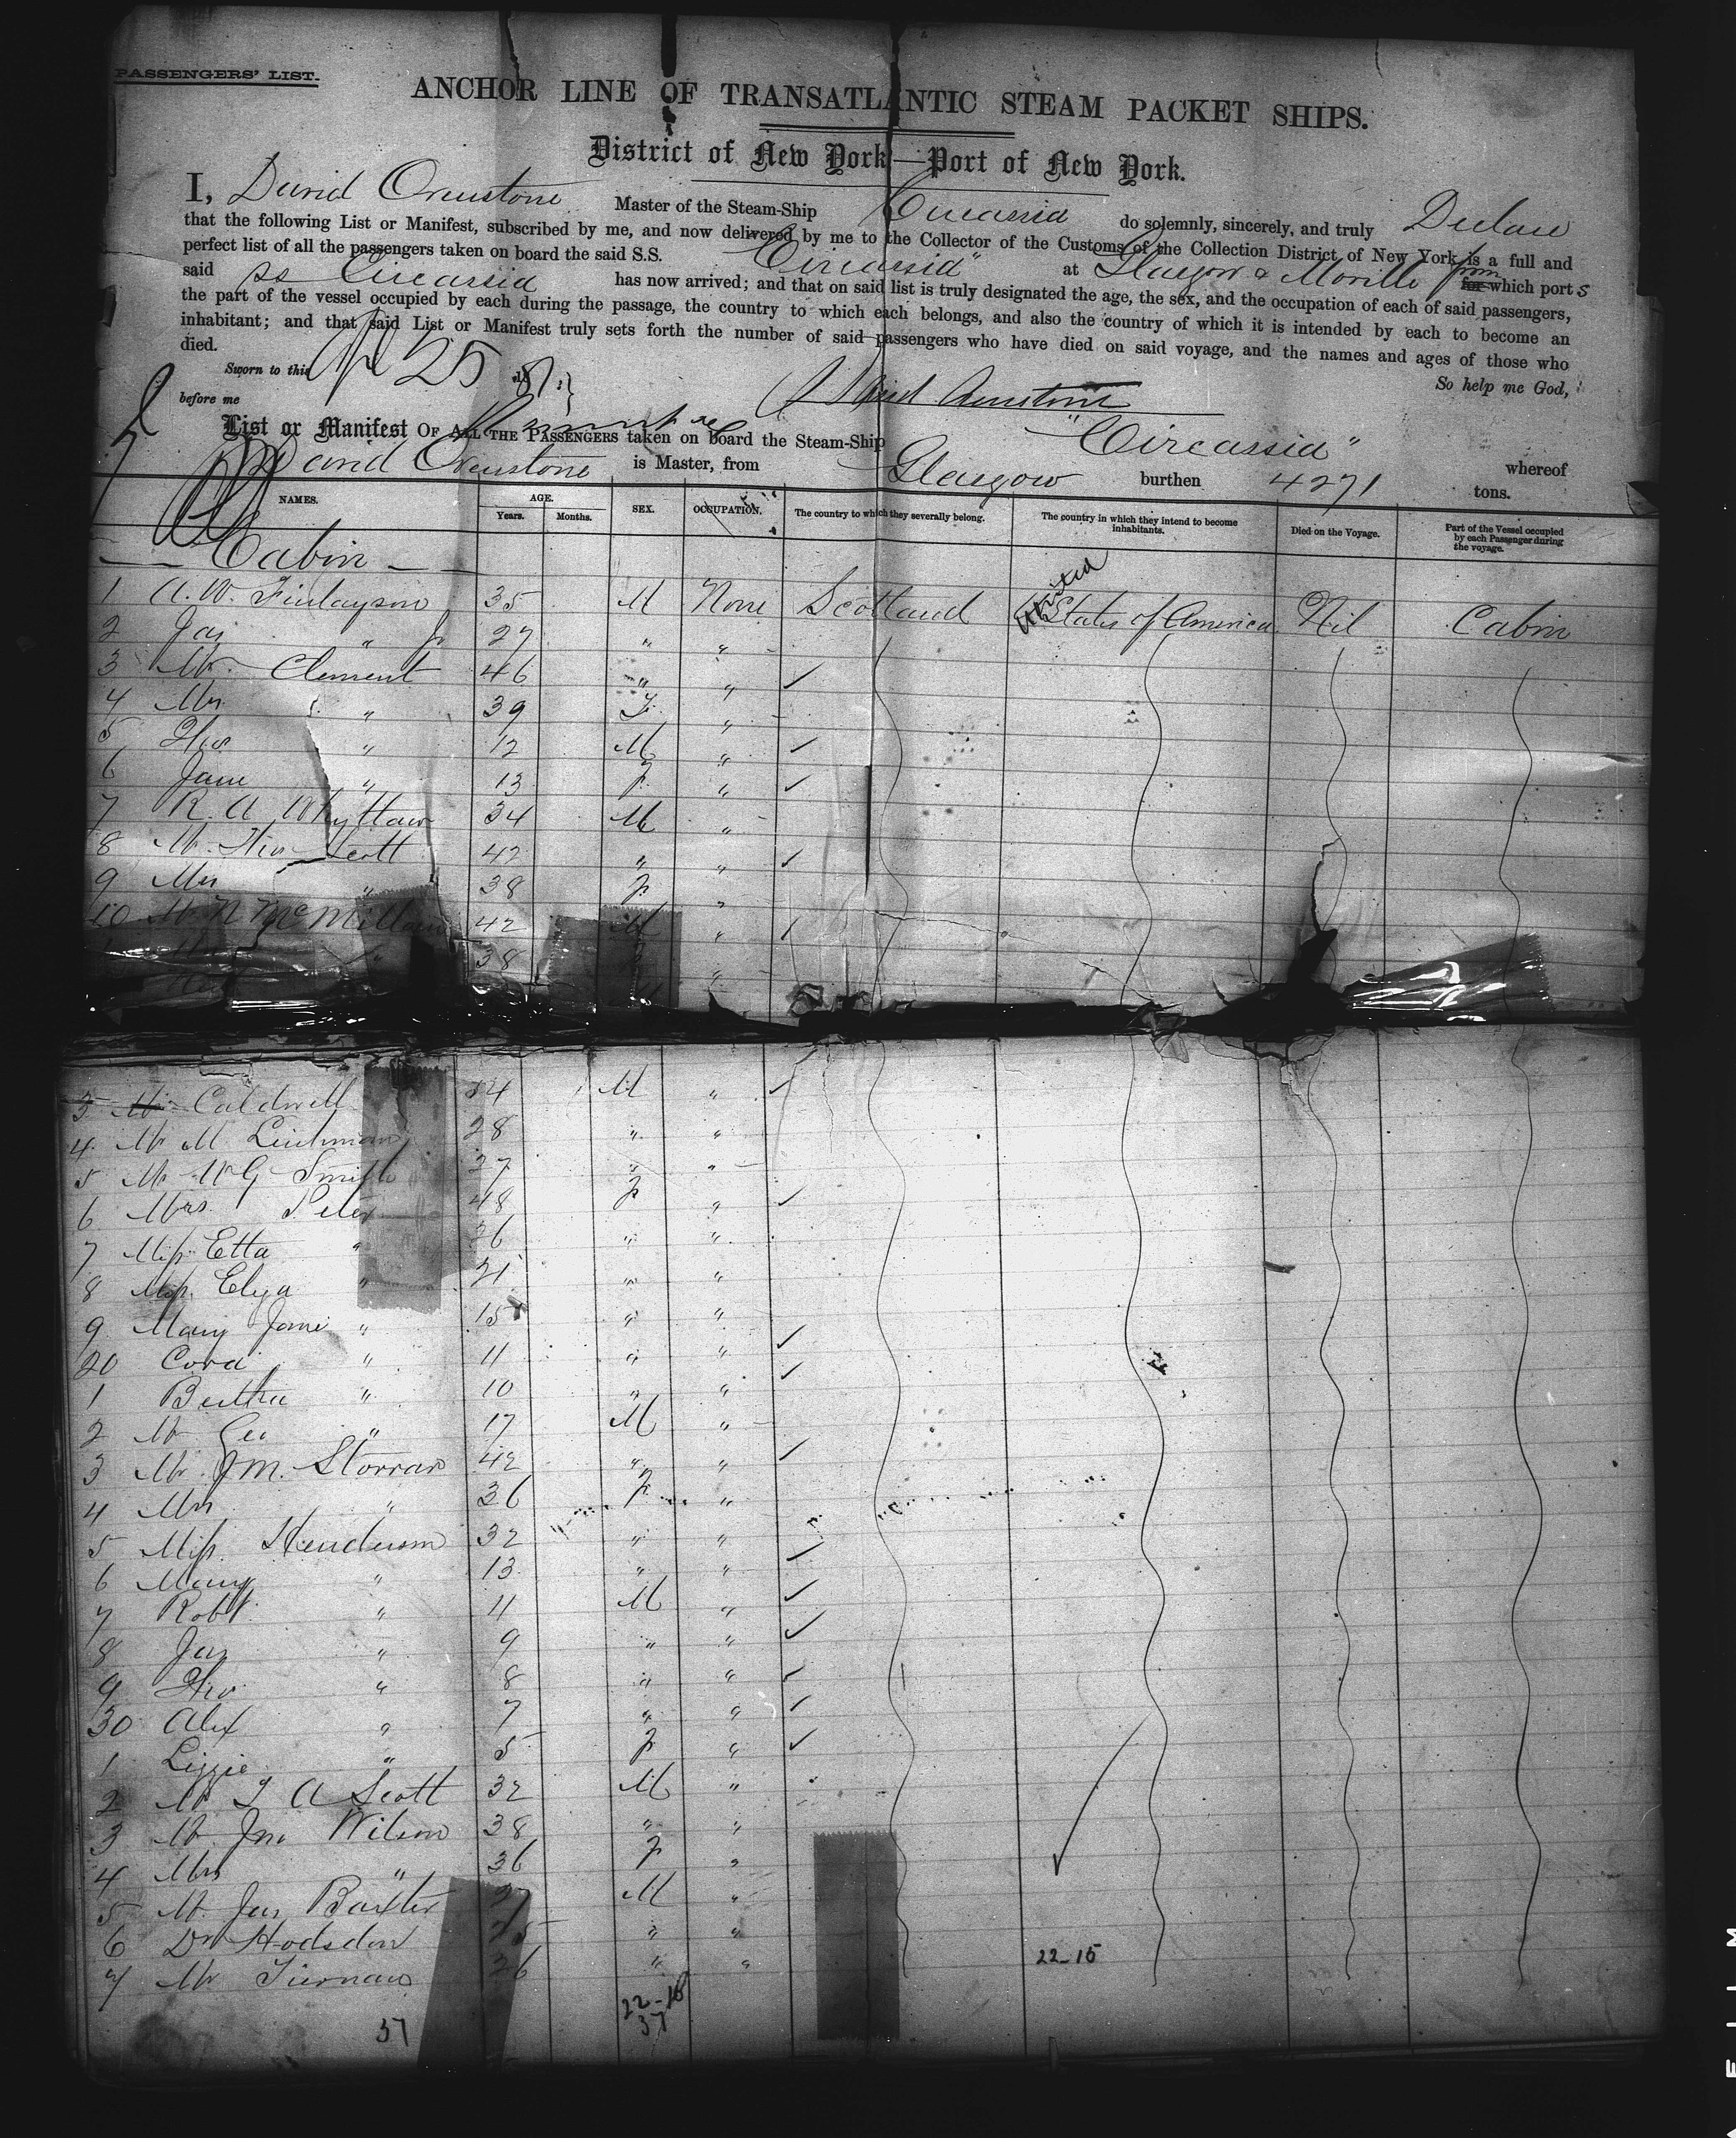 PASSENGERS' LIST.
ANCHOR LINE OF TRANSATLANTIC STEAM PACKET SHIPS.
District of New York—Port of New York.
I, David Ovenstone Master of the Steam-Ship Circassia do solemnly, sincerely, and truly Declare
that the following List or Manifest, subscribed by me, and now delivered by me to the Collector of the Customs of the Collection District of New York is a full and
perfect list of all the passengers taken on board the said S.S. "Circassia" at Glasgow & Moville from
said ss Circassia has now arrived; and that on said list is truly designated the age, the sex, and the occupation of each of said passengers, for which ports
the part of the vessel occupied by each during the passage, the country to which each belongs, and also the country of which it is intended by each to become an
inhabitant; and that said List or Manifest truly sets forth the number of said passengers who have died on said voyage, and the names and ages of those who
died. So help me God,
Sworn to this 25 18
before me David Ovenstone
List or Manifest OF ALL THE PASSENGERS taken on board the Steam-Ship "Circassia" whereof
David Ovenstone is Master, from Glasgow burthen 4271 tons.
NAMES. AGE. Years. Months. SEX. OCCUPATION. The country to which they severally belong. The country in which they intend to become inhabitants. Died on the Voyage. Part of the Vessel occupied by each Passenger during the voyage.
Cabin
1 A. W. Finlayson 35 M None Scotland United States of America Nil Cabin
2 Jas " Jr 27 " "
3 Mr. Clement 46 " "
4 Mrs " 39 F "
5 Thos " 12 M "
6 Jane " 13 F "
7 R. A. Whytlaw 34 M "
8 Mr. Thos Scott 42 " "
9 Mrs " 38 F "
10 Mr. N McMillan 42 M "
Mrs " 38 "
3 Mr Caldwell M "
4 Mr M 28 " "
5 Mr W G Smith 27 " "
6 Mrs. Peter 48 F "
7 Miss Etta " 26 " "
8 Miss Elya " 21 " "
9 Mary Jane " 15 " "
20 Cora " 11 " "
1 Bertha " 10 " "
2 Mr Geo " 17 M "
3 Mr J M. Storrar 42 " "
4 Mrs " 36 F "
5 Miss. Henderson 32 " "
6 Mary " 13 " "
7 Robt. " 11 M "
8 Jas " 9 " "
9 Thos " 8 " "
30 Alex " 7 " "
1 Lizzie " 5 F "
2 Mr T A Scott 32 M "
3 Mr Jno Wilson 38 " "
4 Mrs " 36 F "
5 Mr. Jas Baxter 27 M "
6 Dr Hodsdon " "
7 Mr Tiernan 26 " "
22-15
22-15
37
37
FILM